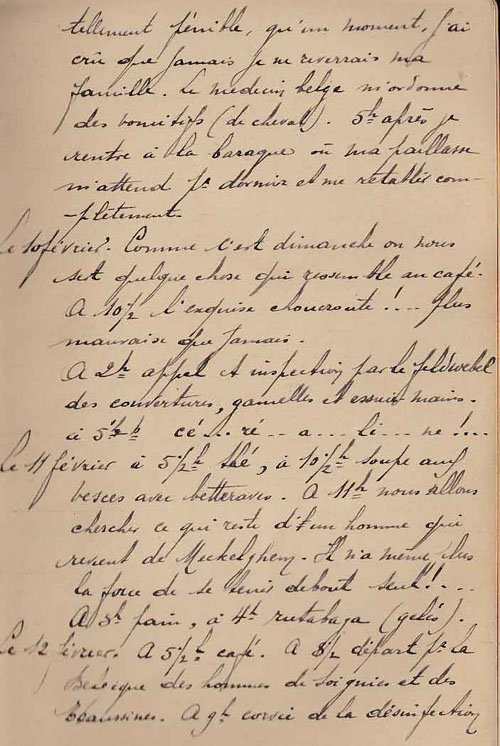 tellement pénible, qu'un moment, j'ai
crû que jamais je ne reverrais ma
famille. Le médecin belge m'ordonne
des vomitifs (de cheval). 5h après je
rentre à la baraque où ma paillasse
m'attend pr dormir et me rétablir com-
-plètement.
Le 10 février. Comme c'est dimanche on nous
sert quelque chose qui ressemble au café.
A 10 1/2 l'exquise choucroute!... plus
mauvaise que jamais.
A 2h appel et inspection par le feldwebel
des couvertures, gamelles et essuie mains.
à 5 h cé... ré... a... li... ne!...
Le 11 février à 5 1/2 h thé, à 10 1/2 h soupe aux
vesces avec betteraves. A 11h nous allons
chercher ce qui reste d'un homme qui
revient de Meckelghem. Il n'a même plus
la force de se tenir debout seul!...
A 3h pain, à 4h rutabaga (gelés).
Le 12 février. A 5 1/2 h café. A 8 1/2 départ pr la
Belgique des hommes de Soignies et des
Ecaussines. A 9h corvée de la désinfection